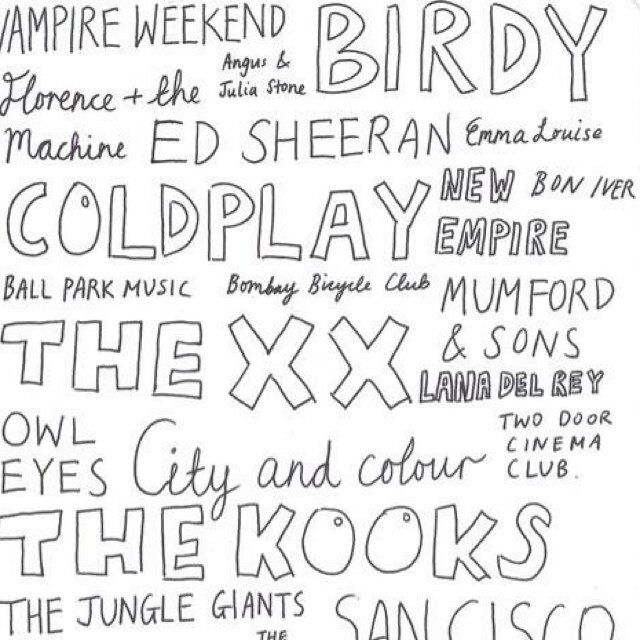 VAMPIRE WEEKEND
Angus &
Julia Stone
BIRDY
Florence + the
Machine
ED SHEERAN
Emma Louise
COLDPLAY
NEW
EMPIRE
BON IVER
BALL PARK MUSIC
Bombay Bicycle Club
MUMFORD
& SONS
THE XX
LANA DEL REY
OWL
EYES
City and colour
TWO DOOR
CINEMA
CLUB.
THE KOOKS
THE JUNGLE GIANTS
THE
SAN CISCO